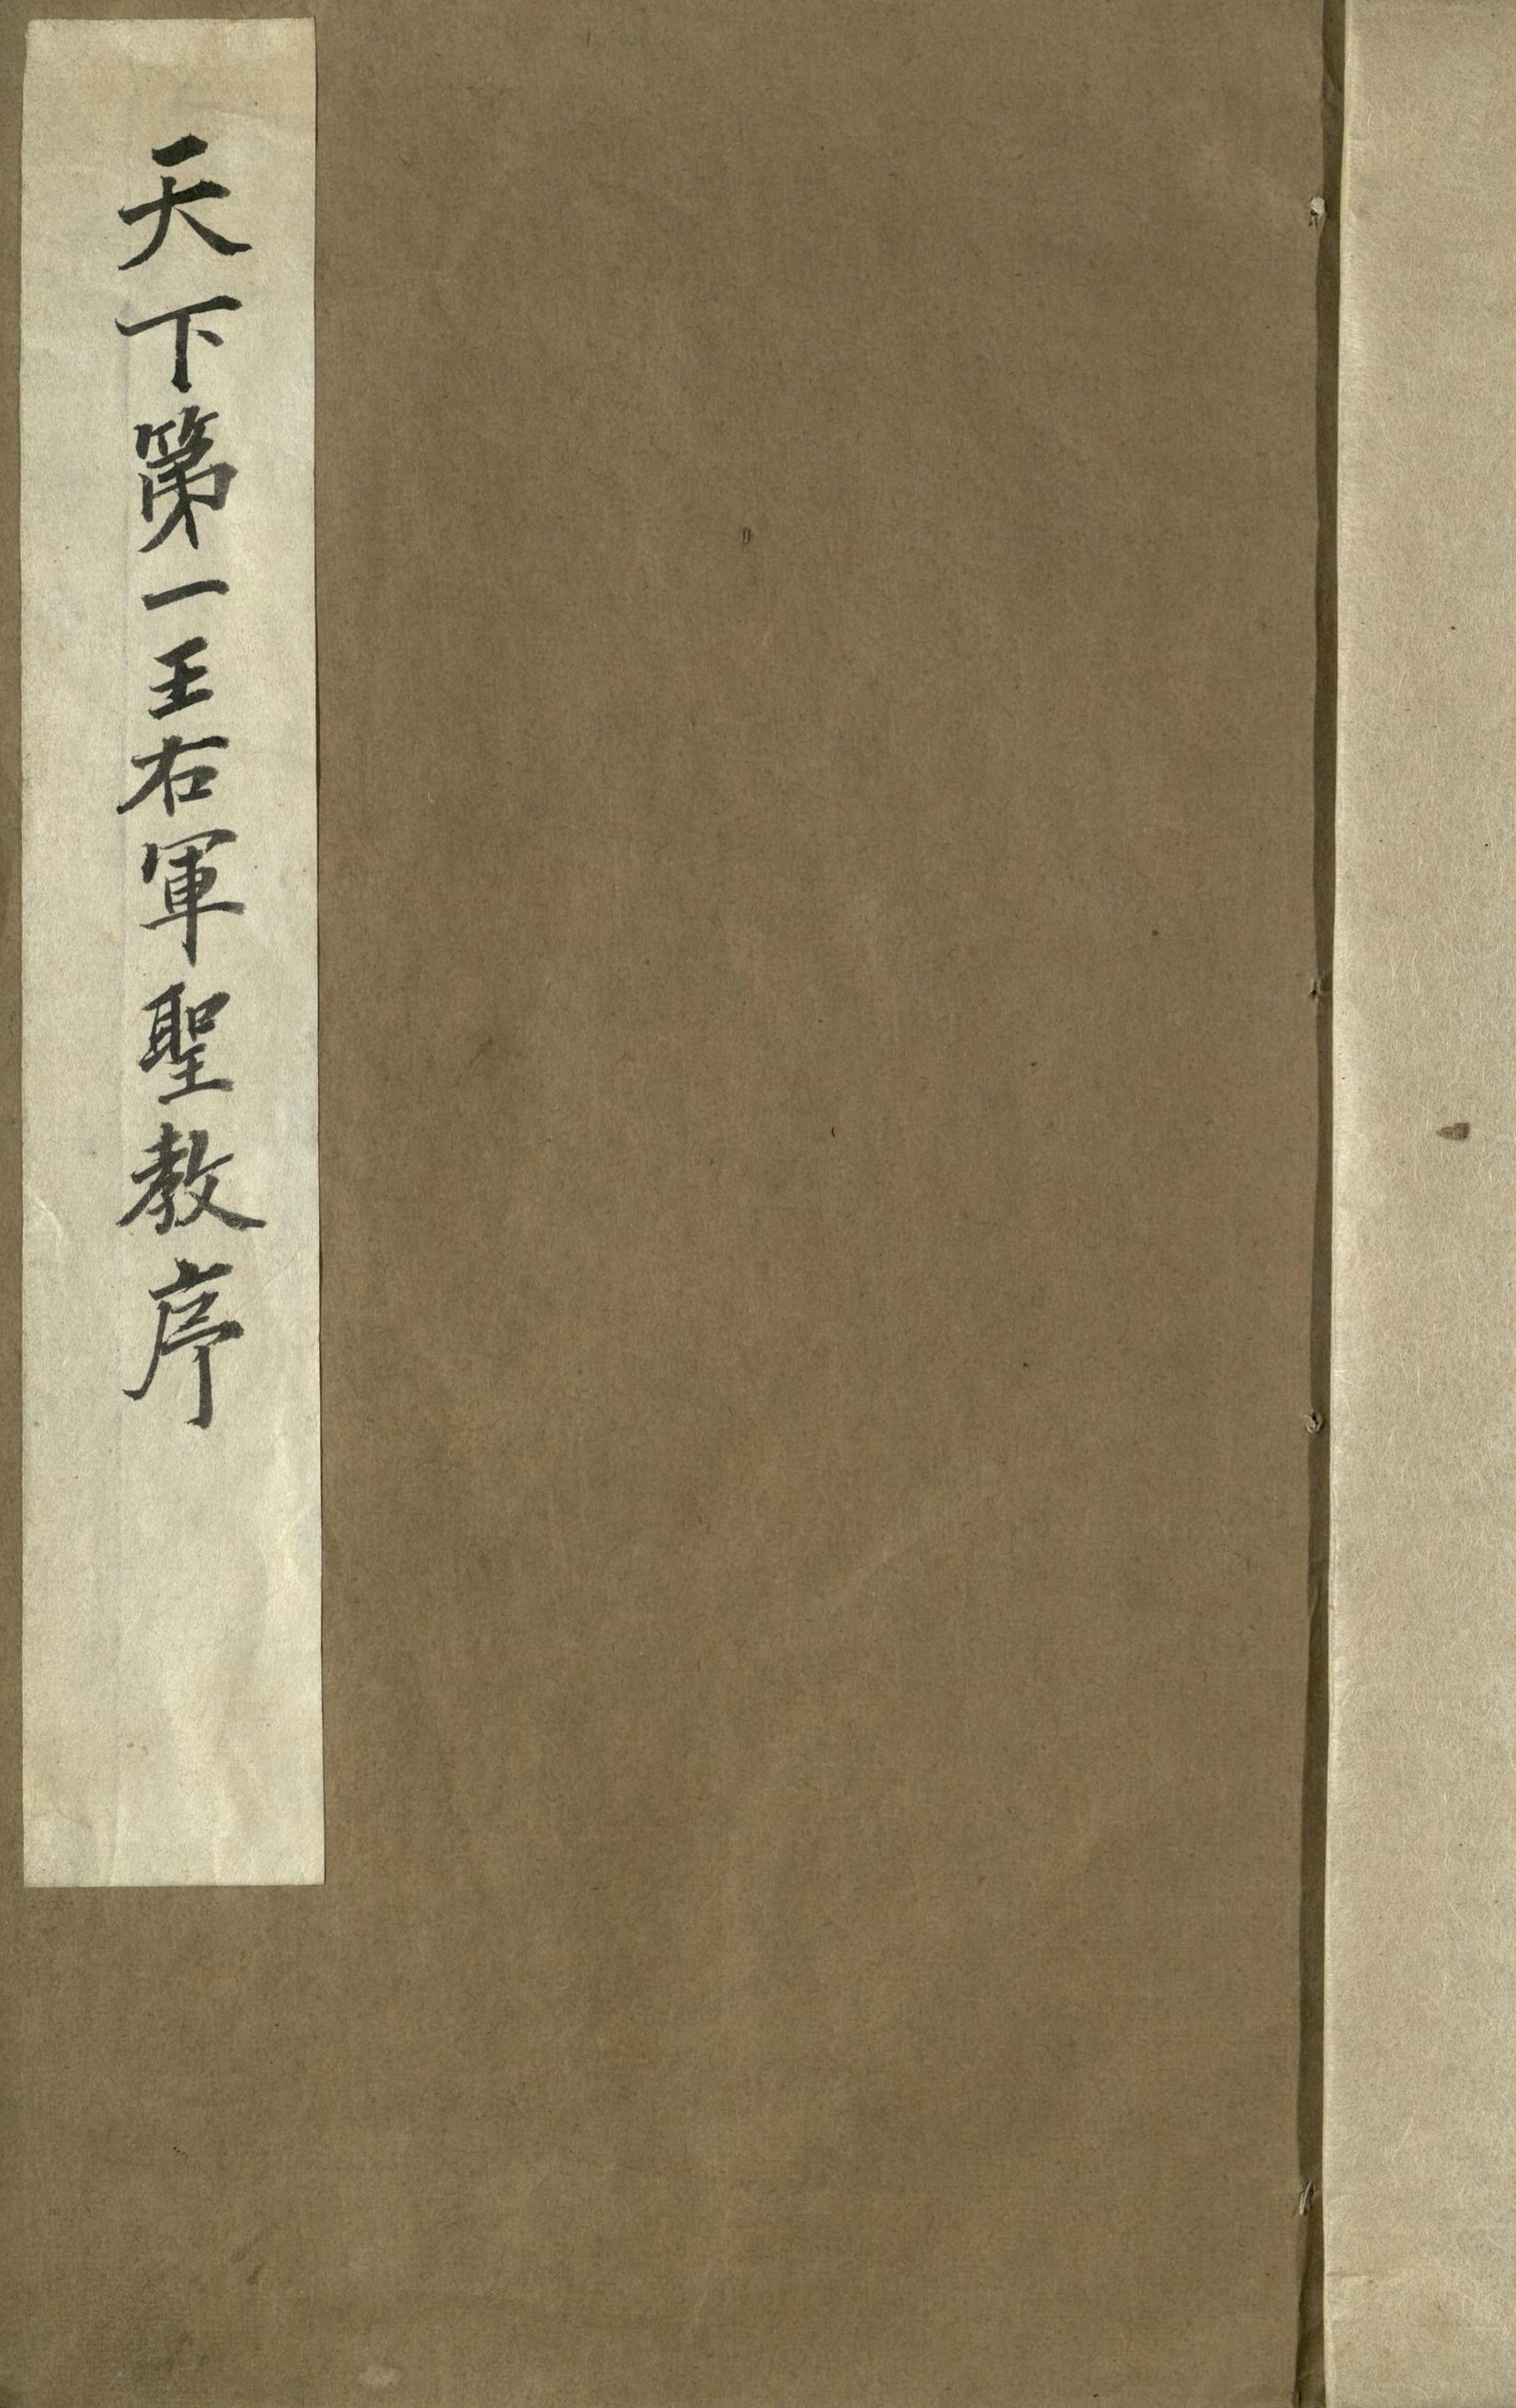 天下第一王右軍聖教序